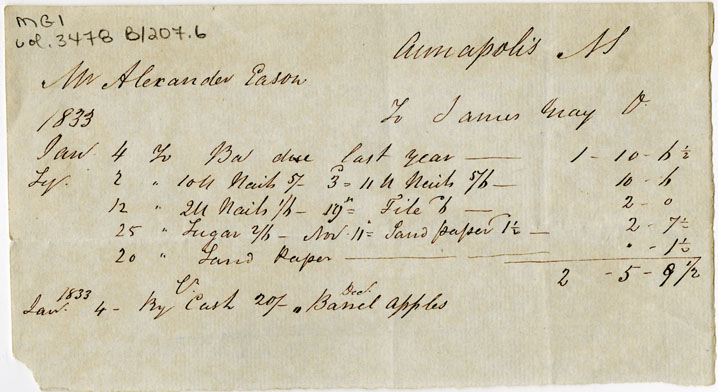 MG1
vol. 3478 B/207.6
Annapolis NS
Mr Alexander Eason
1833
To James May Dr
Jan 4 To Bal due last year — 1 - 10 - 6 ½
2 " 10 lb Nails 5/- 11 lb Nails 5/6 — 10 - 6
12 " 2 lb Nails 1/6 - 19th File 6 — 2 - 0
25 " Sugar 2/6 - Nov. 11 = Sand paper 1½ — 2 - 7½
20 " Sand Paper — " - 1½
2 - 5 - 9 1/2
Cr.
1833 Dec.
Jan. 4 - By Cash 20/- " Barrel apples